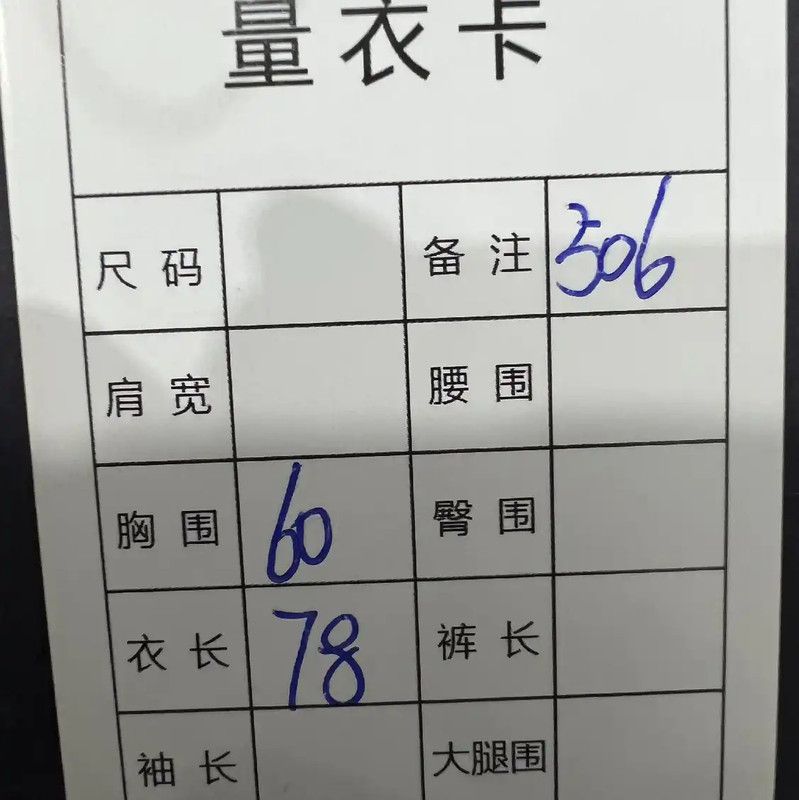 量衣卡
尺码 备注 506
肩宽 腰围
胸围 60 臀围
衣长 78 裤长
袖长 大腿围